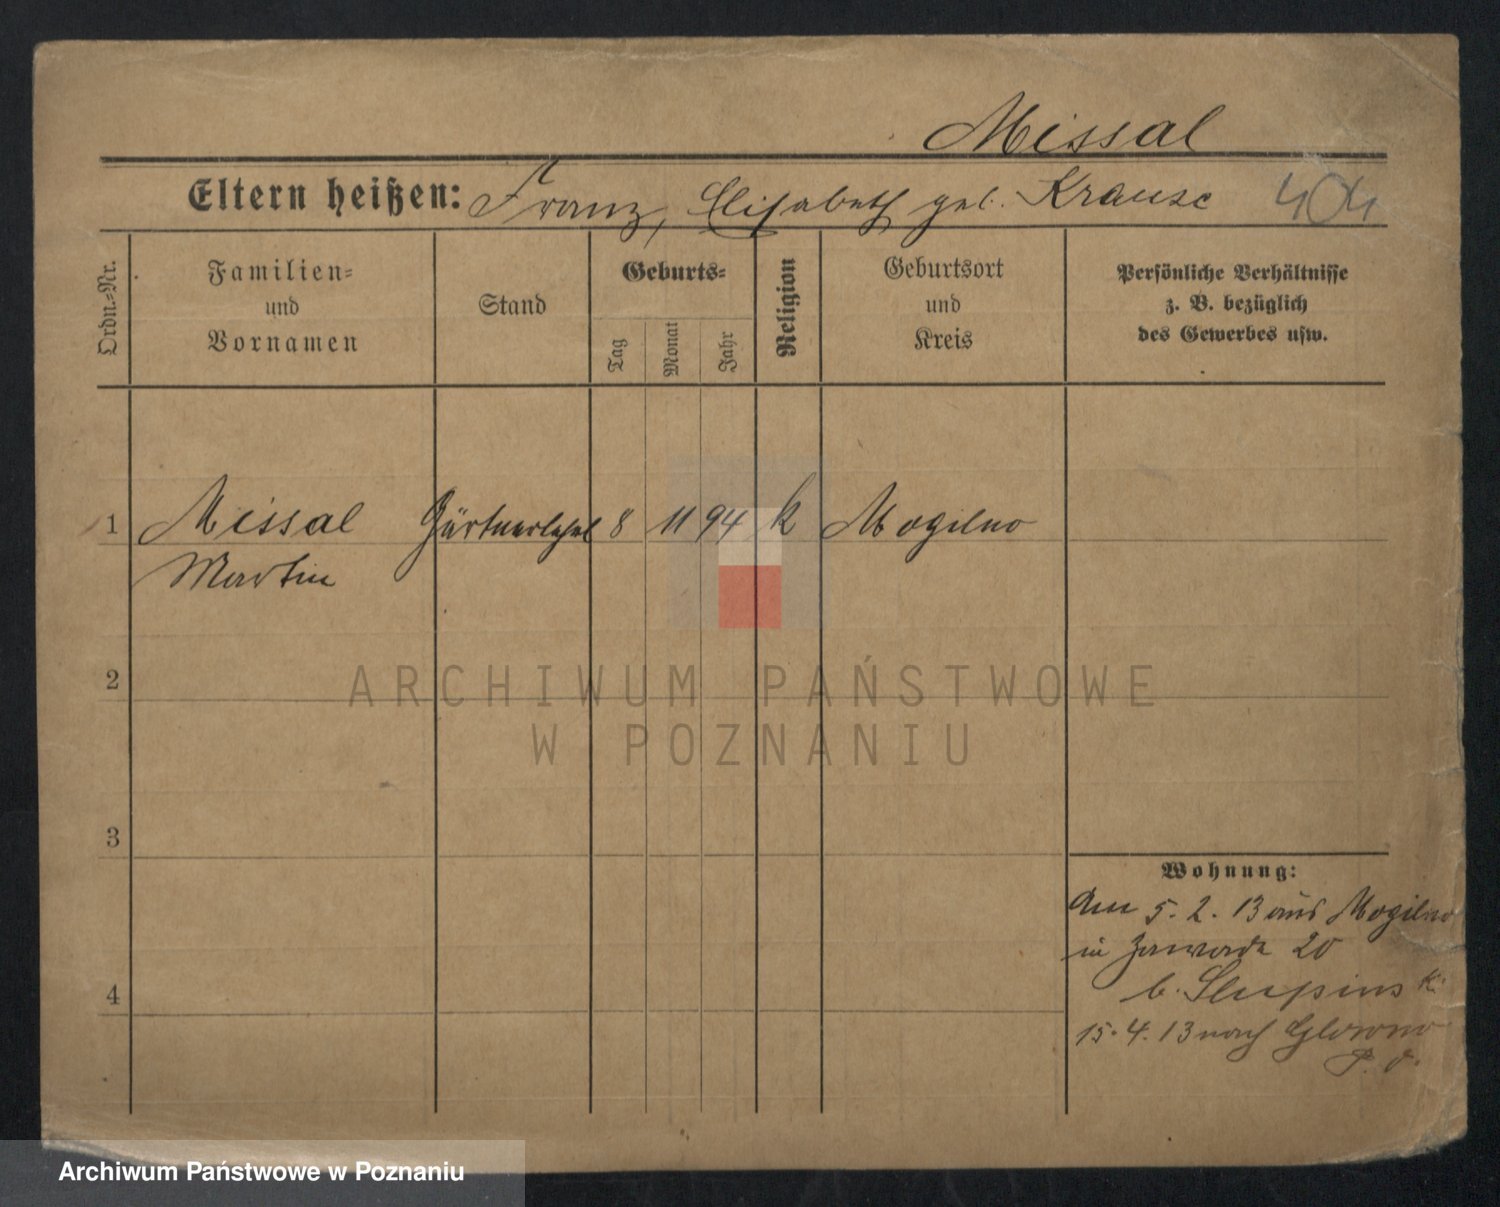 Missal
Eltern heißen: Franz, Elisabeth geb. Krause 404
Ordn.-Nr.
Familien-
und
Vornamen
Stand
Geburts-
Tag
Monat
Jahr
Religion
Geburtsort
und
Kreis
Persönliche Verhältnisse
z. B. bezüglich
des Gewerbes usw.
1 Missal Gärtnerlehrl 8 11 94 k Mogilno
Martin
2
3
4
Wohnung:
Am 5. 2. 13 aus Mogilno
in Zawade 20
b. Slupinski
15. 4. 13 nach Glowno
ARCHIWUM PAŃSTWOWE
W POZNANIU
Archiwum Państwowe w Poznaniu